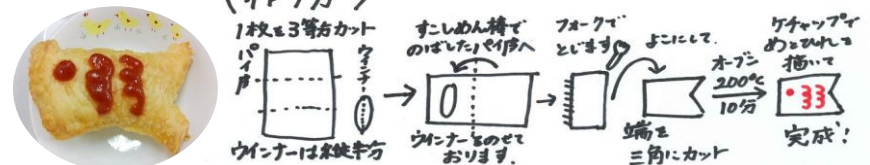 1枚を3等分カット
パイ戸
ウインナー
ウインナーは縦半分
すこしめん棒で
のばしたパイ戸へ
ウインナーをのせて
おります。
フォークで
とじます
よこにして、
端を
三角にカット
オーブン
200℃
10分
ケチャップで
めとひれを
描いて
完成!